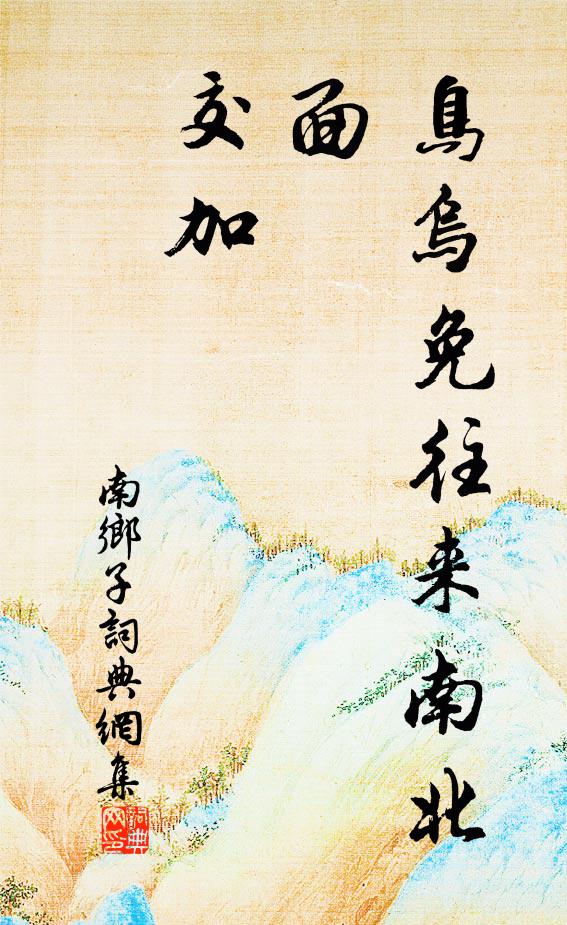 鳥烏免往来南北
面
交加
南鄉子詞典網集
詞典
网印